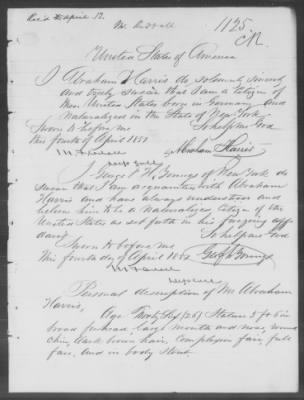 Rec'd April 12.
1125.
United States of America
I Abraham Harris do solemnly sincerely
and truly swear that I am a Citizen of
the United States born in Germany and
Naturalized in the State of New York
Sworn to before me So help me God
this fourth of April 1852
Abraham Harris
I George H. of New York do
swear that I am acquainted with Abraham
Harris and have always understood and
believe him to be a Naturalized Citizen of the
United States as set forth in his foregoing affi
davit So help me God
Sworn to before me
this fourth day of April 1852
Personal description of Mr Abraham
Harris,
Age (26) Stature 5 ft 6 in
broad forehead, large mouth and nose, round
chin, dark brown hair, Complexion fair, full
face, and in body stout.